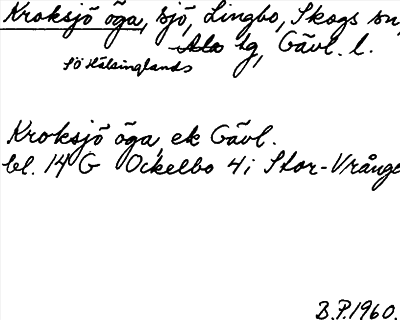 Kroksjö öga, sjö, Lingbo, Skogs sn,
Ala tg, Gävl. l.
Sö Hälsinglands
Kroksjö öga, ek Gävl.
bl. 14 G Ockelbo 4i Stor-Vrånge
B.P. 1960.